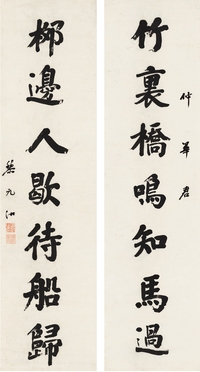 竹裏橋鳴知馬過
仲華君
柳邊人歇待船歸
黎元洪